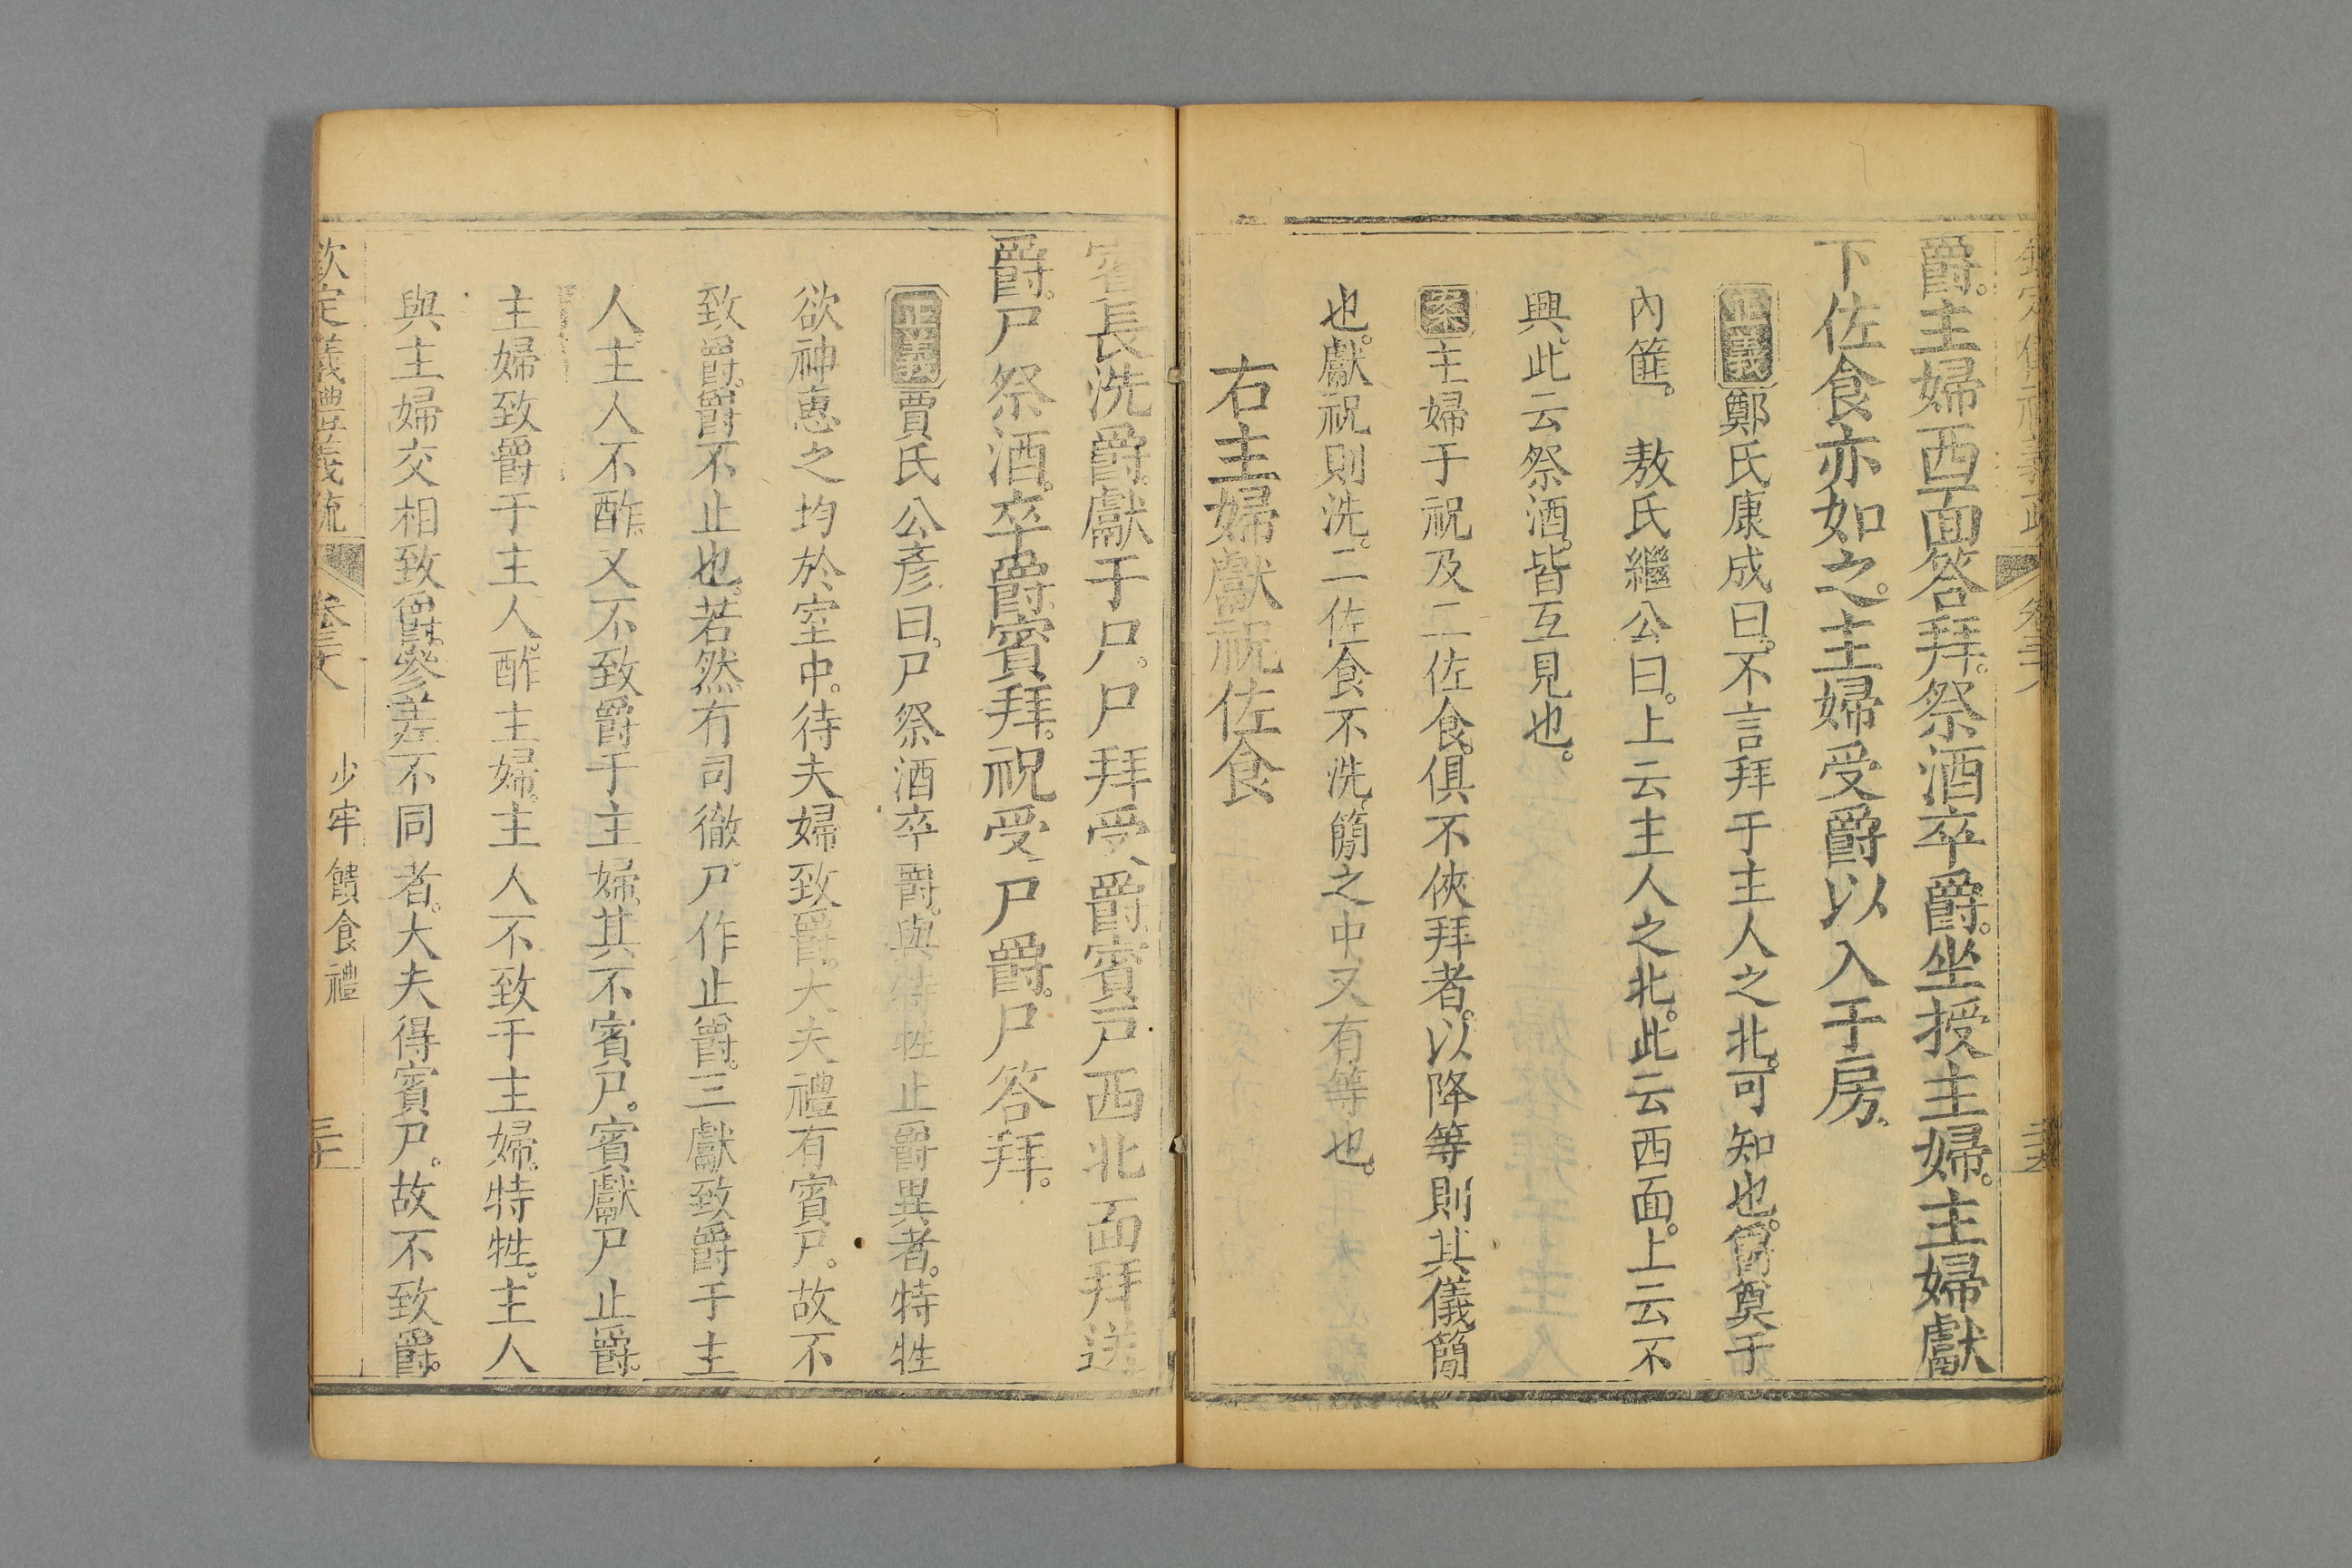 爵。主婦西面答拜。祭酒卒爵。坐授主婦。主婦獻
下佐食亦如之。主婦受爵以入于房。
正義鄭氏康成曰。不言拜于主人之北。可知也。爵奠于
內篚。 敖氏繼公曰。上云主人之北。此云西面。上云不
興。此云祭酒。皆互見也。
案主婦于祝及二佐食。俱不俠拜者。以降等則其儀簡
也。獻祝則洗。二佐食不洗。簡之中又有等也。
右主婦獻祝佐食
賓長洗爵。獻于尸。尸拜受爵。賓戶西北面拜送
爵。尸祭酒。卒爵。賓拜。祝受尸爵。尸答拜。
正義賈氏公彥曰。尸祭酒卒爵。與特牲止爵異者。特牲
欲神惠之均於室中。待夫婦致爵。大夫禮有賓尸。故不
致爵。爵不止也。若然。有司徹。尸作止爵。三獻致爵于主
人。主人不酢。又不致爵于主婦。其不賓尸。賓獻尸止爵。
主婦致爵于主人。酢主婦。主人不致于主婦。特牲。主人
與主婦交相致爵。參差不同者。大夫得賓尸。故不致爵。
欽定儀禮義疏 卷三十八 少牢饋食禮 三十